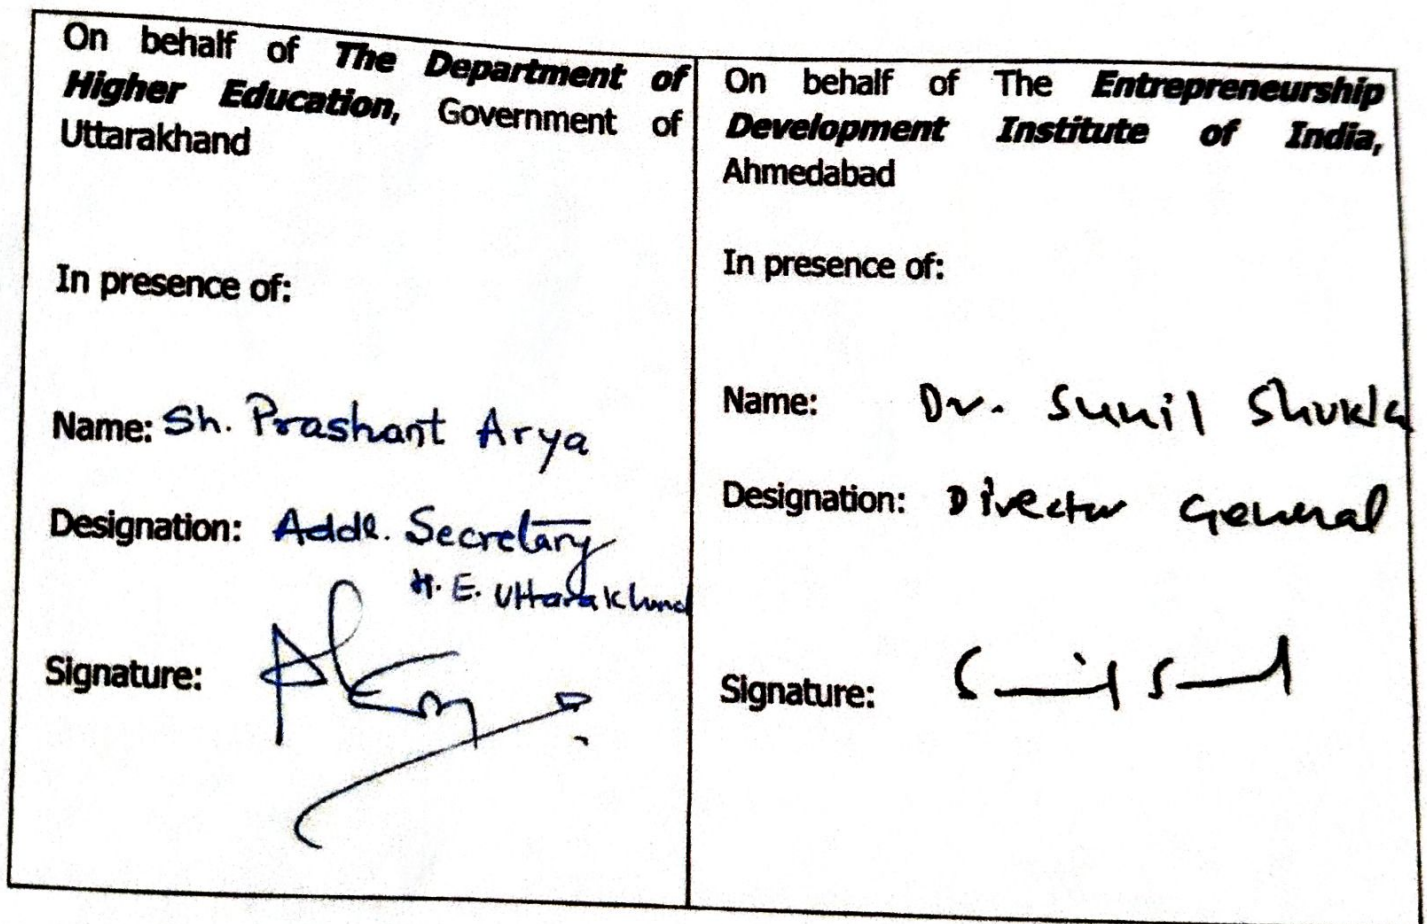 On behalf of The Department of
Higher Education, Government of
Uttarakhand
In presence of:
Name: Sh. Prashant Arya
Designation: Addl. Secretary
H. E. Uttarakhand
Signature:
On behalf of The Entrepreneurship
Development Institute of India,
Ahmedabad
In presence of:
Name: Dr. Sunil Shukla
Designation: Director General
Signature: